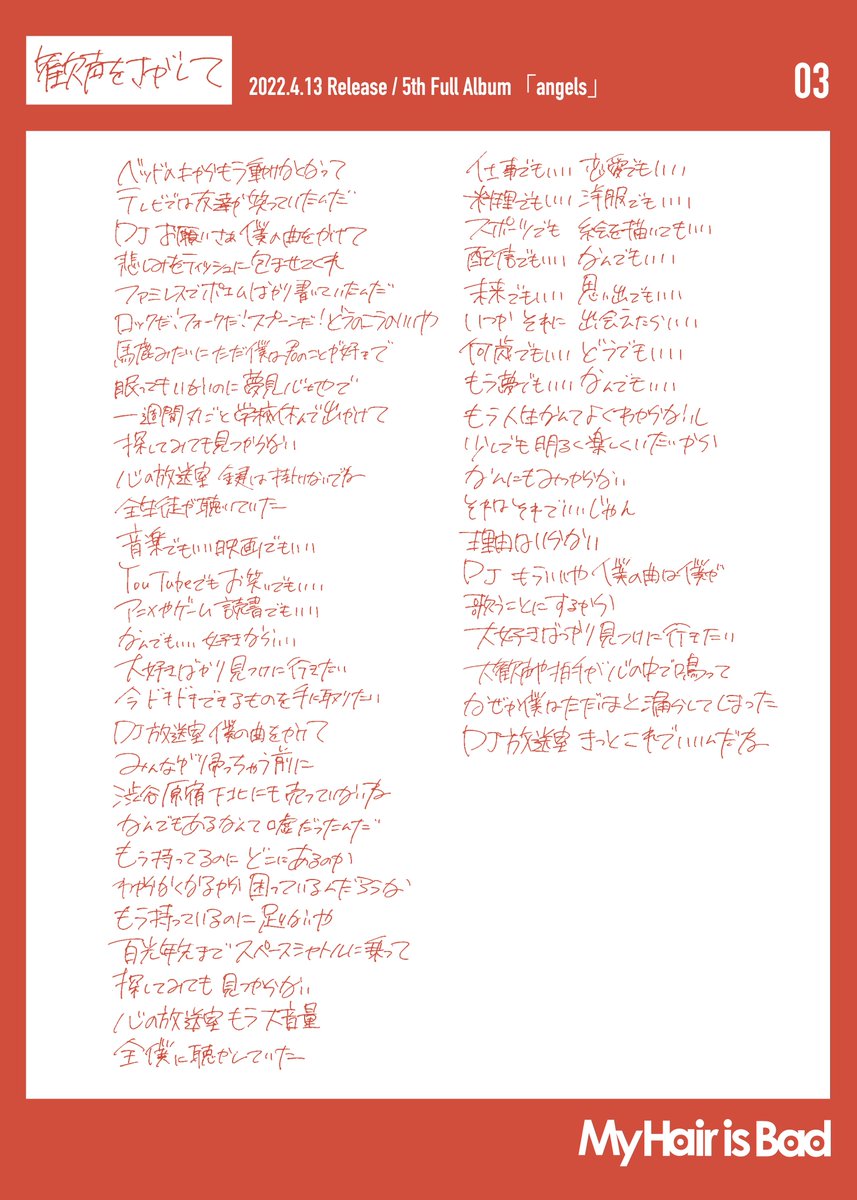 歓声をさがして
2022.4.13 Release / 5th Full Album 「angels」
03
ベッドの上からもう動けなくなって
テレビでは友達が笑っていたんだ
DJ お願いさぁ 僕の曲をかけて
悲しみをティッシュに包ませてくれ
ファミレスでポエムばかり書いていたんだ
ロックだ!フォークだ!スプーンだ!どうのこうのいいや
馬鹿みたいにただ僕は君のことが好きで
眠ってもいないのに夢見心地で
一週間丸ごと学校休んで出かけて
探してみても見つからない
心の放送室 鍵は掛けないでね
全生徒が聴いていた
音楽でもいい映画でもいい
YouTubeでもお笑いでもいい
アニメやゲーム 読書でもいい
なんでもいい 好きならいい
大好きばかり見つけに行きたい
今ドキドキできるものを手に取りたい
DJ放送室 僕の曲をかけて
みんなが帰っちゃう前に
渋谷原宿下北にも売っていないね
なんでもあるなんて嘘だったんだ
もう持ってるのに どこにあるのか
わからなくなるから 困っているんだろうな
もう持っているのに 足りないや
百光年先まで スペースシャトルに乗って
探してみても 見つからない
心の放送室 もう大音量
全僕に聴かしていた
仕事でもいい 恋愛でもいい
料理でもいい 洋服でもいい
スポーツでも 絵を描いてもいい
配信でもいい なんでもいい
未来でもいい 思い出でもいい
いつか それに 出会えたらいい
何歳でもいい どうでもいい
もう夢でもいい なんでもいい
もう人生なんてよくわからないし
少しでも明るく楽しくいたいから
なんにもみつからない
それはそれでいいじゃん
理由はいらない
DJ もういいや 僕の曲は僕が
歌うことにするから
大好きばっかり見つけに行きたい
大歓声や拍手が心の中で鳴って
なぜか僕はただほっと漏らしてしまった
DJ放送室 きっとこれでいいんだね
My Hair is Bad